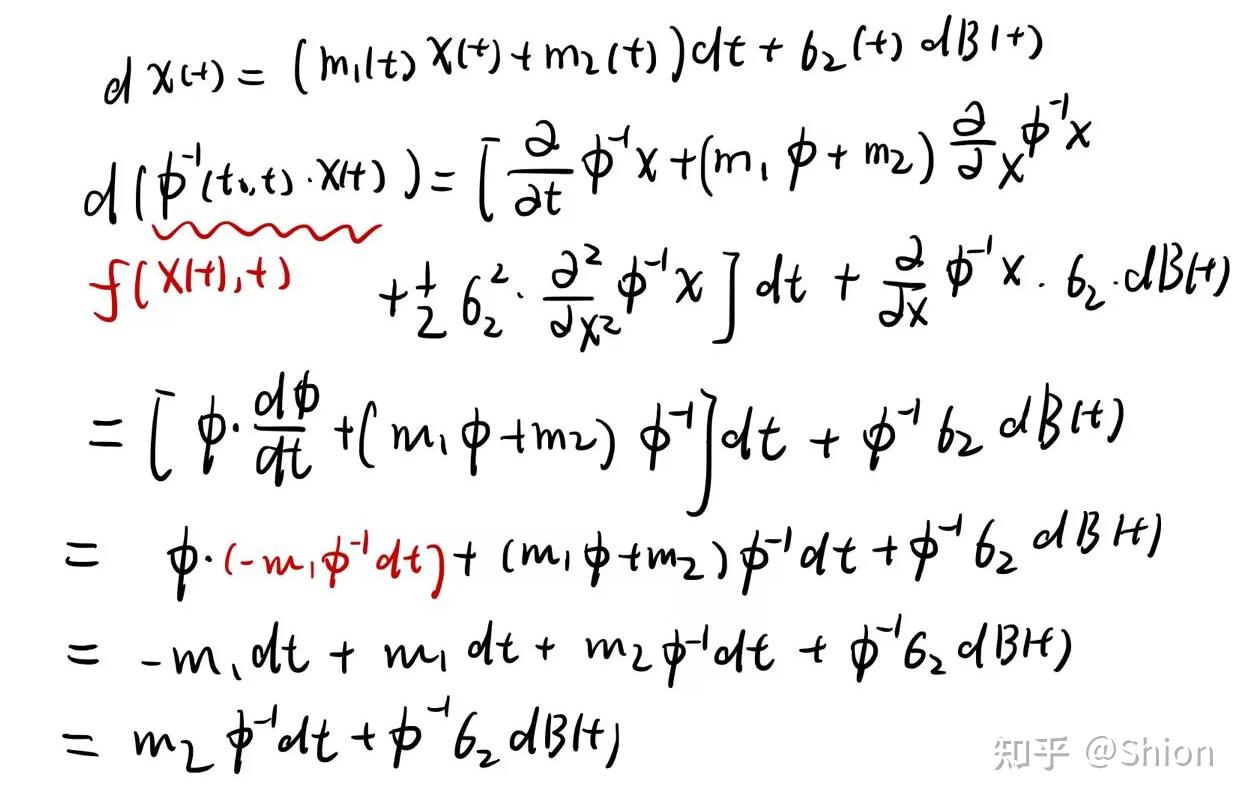 dX(t) = (m₁(t) X(t) + m₂(t)) dt + б₂(t) dB(t)
d(ϕ⁻¹(t₀,t)·X(t)) = [∂/∂t ϕ⁻¹x + (m₁ϕ + m₂) ∂/∂x ϕ⁻¹x
f(X(t),t) + 1/2 б₂²· ∂²/∂x² ϕ⁻¹x] dt + ∂/∂x ϕ⁻¹x · б₂·dB(t)
= [ϕ·dϕ/dt + (m₁ϕ+m₂) ϕ⁻¹] dt + ϕ⁻¹б₂ dB(t)
= ϕ·(-m₁ϕ⁻¹dt) + (m₁ϕ+m₂)ϕ⁻¹dt + ϕ⁻¹б₂ dB(t)
= -m₁dt + m₁dt + m₂ϕ⁻¹dt + ϕ⁻¹б₂ dB(t)
= m₂ϕ⁻¹dt + ϕ⁻¹б₂ dB(t)
知乎 @Shion